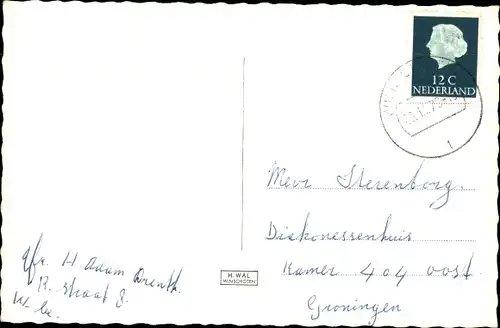 12 C
NEDERLAND
1
Mevr Sterenborg.
Diakonessenhuis
Kamer 404 oost.
Groningen
afz. H Adam Drenth.
R. straat 8.
H. WAL
WINSCHOTEN